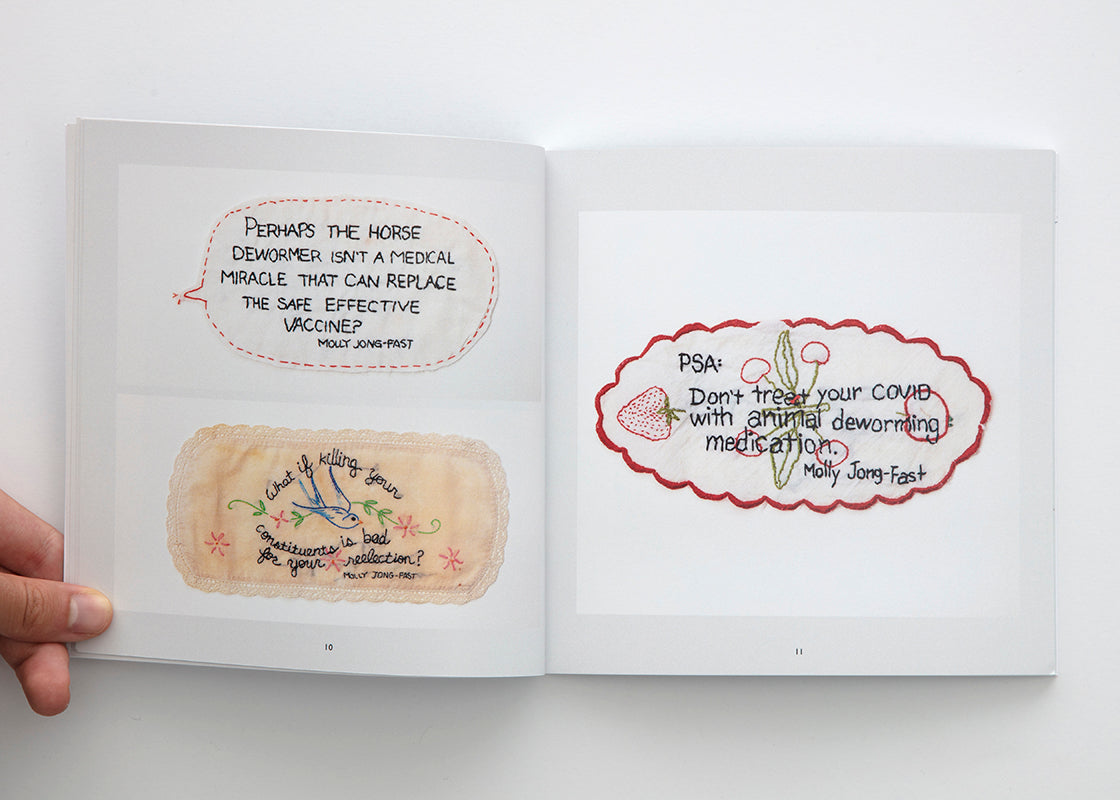 PERHAPS THE HORSE
DEWORMER ISN'T A MEDICAL
MIRACLE THAT CAN REPLACE
THE SAFE EFFECTIVE
VACCINE?
MOLLY JONG-FAST
What if killing your
constituents is bad
for your reelection?
MOLLY JONG-FAST
10
PSA:
Don't treat your COVID
with animal deworming
medication.
Molly Jong-Fast
11